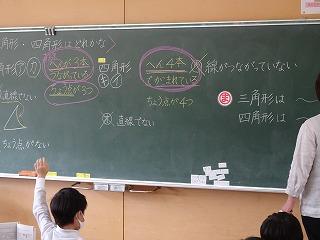 角形・四角形はどれかな
へんが3本
つながっている
ちょう点が3つ
四角形
キ イ
へん4本
でかこまれている
線がつながっていない
ちょう点が4つ
直線でない
直線でない
ちょう点がない
ま 三角形は 〜
四角形は 〜